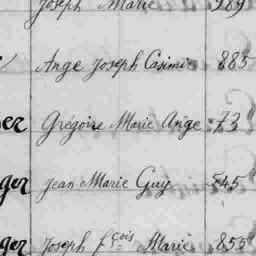 Joseph Marie 289
Ange Joseph Casimir 885
er Grégoire Marie Ange 73
ger Jean Marie Guy 545
ger Joseph f.çois Marie 855